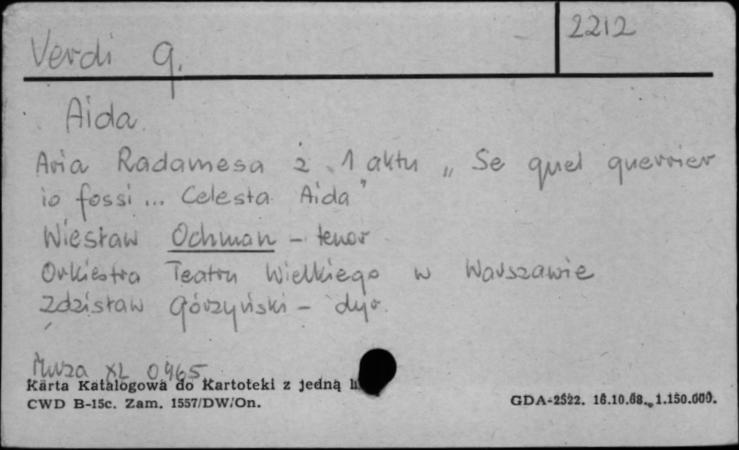 Verdi G.
2212
Aida
Aria Radamesa z 1 aktu „Se quel guerrier
io fossi... Celesta Aida"
Wiesław Ochman - tenor
Orkiestra Teatru Wielkiego w Warszawie
Zdzisław Górzyński - dyr.
Muza XL 0465
Karta Katalogowa do Kartoteki z jedną
CWD B-15c. Zam. 1557/DW/On.
GDA-2522. 16.10.68. 1.150.000.